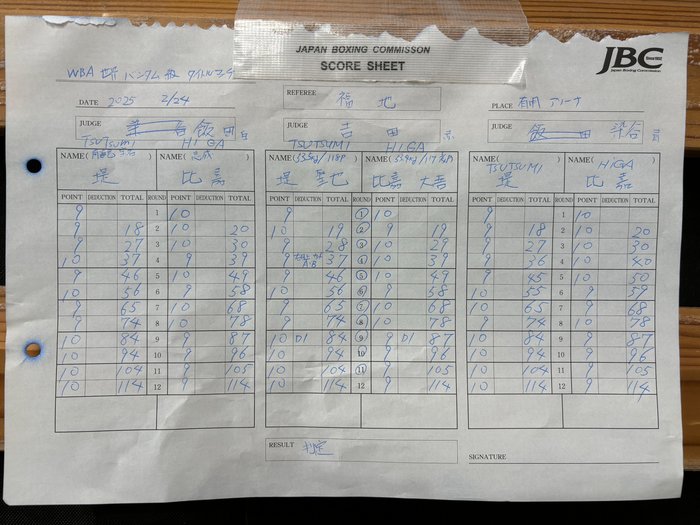 JAPAN BOXING COMMISSON
SCORE SHEET
JBC
Since1952
Japan Boxing Commission
WBA 世界 バンタム級 タイトルマッチ
DATE 2025 2/24
REFEREE 福地
PLACE 有明アリーナ
JUDGE 飯田
JUDGE 吉田
JUDGE 飯田 染谷
TSUTSUMI HIGA
TSUTSUMI HIGA
TSUTSUMI HIGA
NAME( ) NAME( 志成 ) NAME( 53.5kg/118P ) NAME( ) NAME( ) NAME( )
堤 比嘉 堤 聖也 比嘉 大吾 堤 比嘉
POINT DEDUCTION TOTAL ROUND POINT DEDUCTION TOTAL POINT DEDUCTION TOTAL ROUND POINT DEDUCTION TOTAL POINT DEDUCTION TOTAL ROUND POINT DEDUCTION TOTAL
9 1 10 9 1 10 9 1 10
9 18 2 10 20 10 19 2 9 19 9 18 2 10 20
9 27 3 10 30 9 28 3 10 29 9 27 3 10 30
10 37 4 9 39 9 37 4 10 39 9 36 4 10 40
9 46 5 10 49 9 46 5 10 49 9 45 5 10 50
10 56 6 9 58 10 56 6 9 58 10 55 6 9 59
9 65 7 10 68 9 65 7 10 68 10 65 7 9 68
9 74 8 10 78 9 74 8 10 78 9 74 8 10 78
10 84 9 9 87 10 D1 84 9 9 D1 87 10 84 9 9 87
10 94 10 9 96 10 94 10 9 96 10 94 10 9 96
10 104 11 9 105 10 104 11 9 105 10 104 11 9 105
10 114 12 9 114 10 114 12 9 114 10 114 12 9 114
RESULT 判定
SIGNATURE